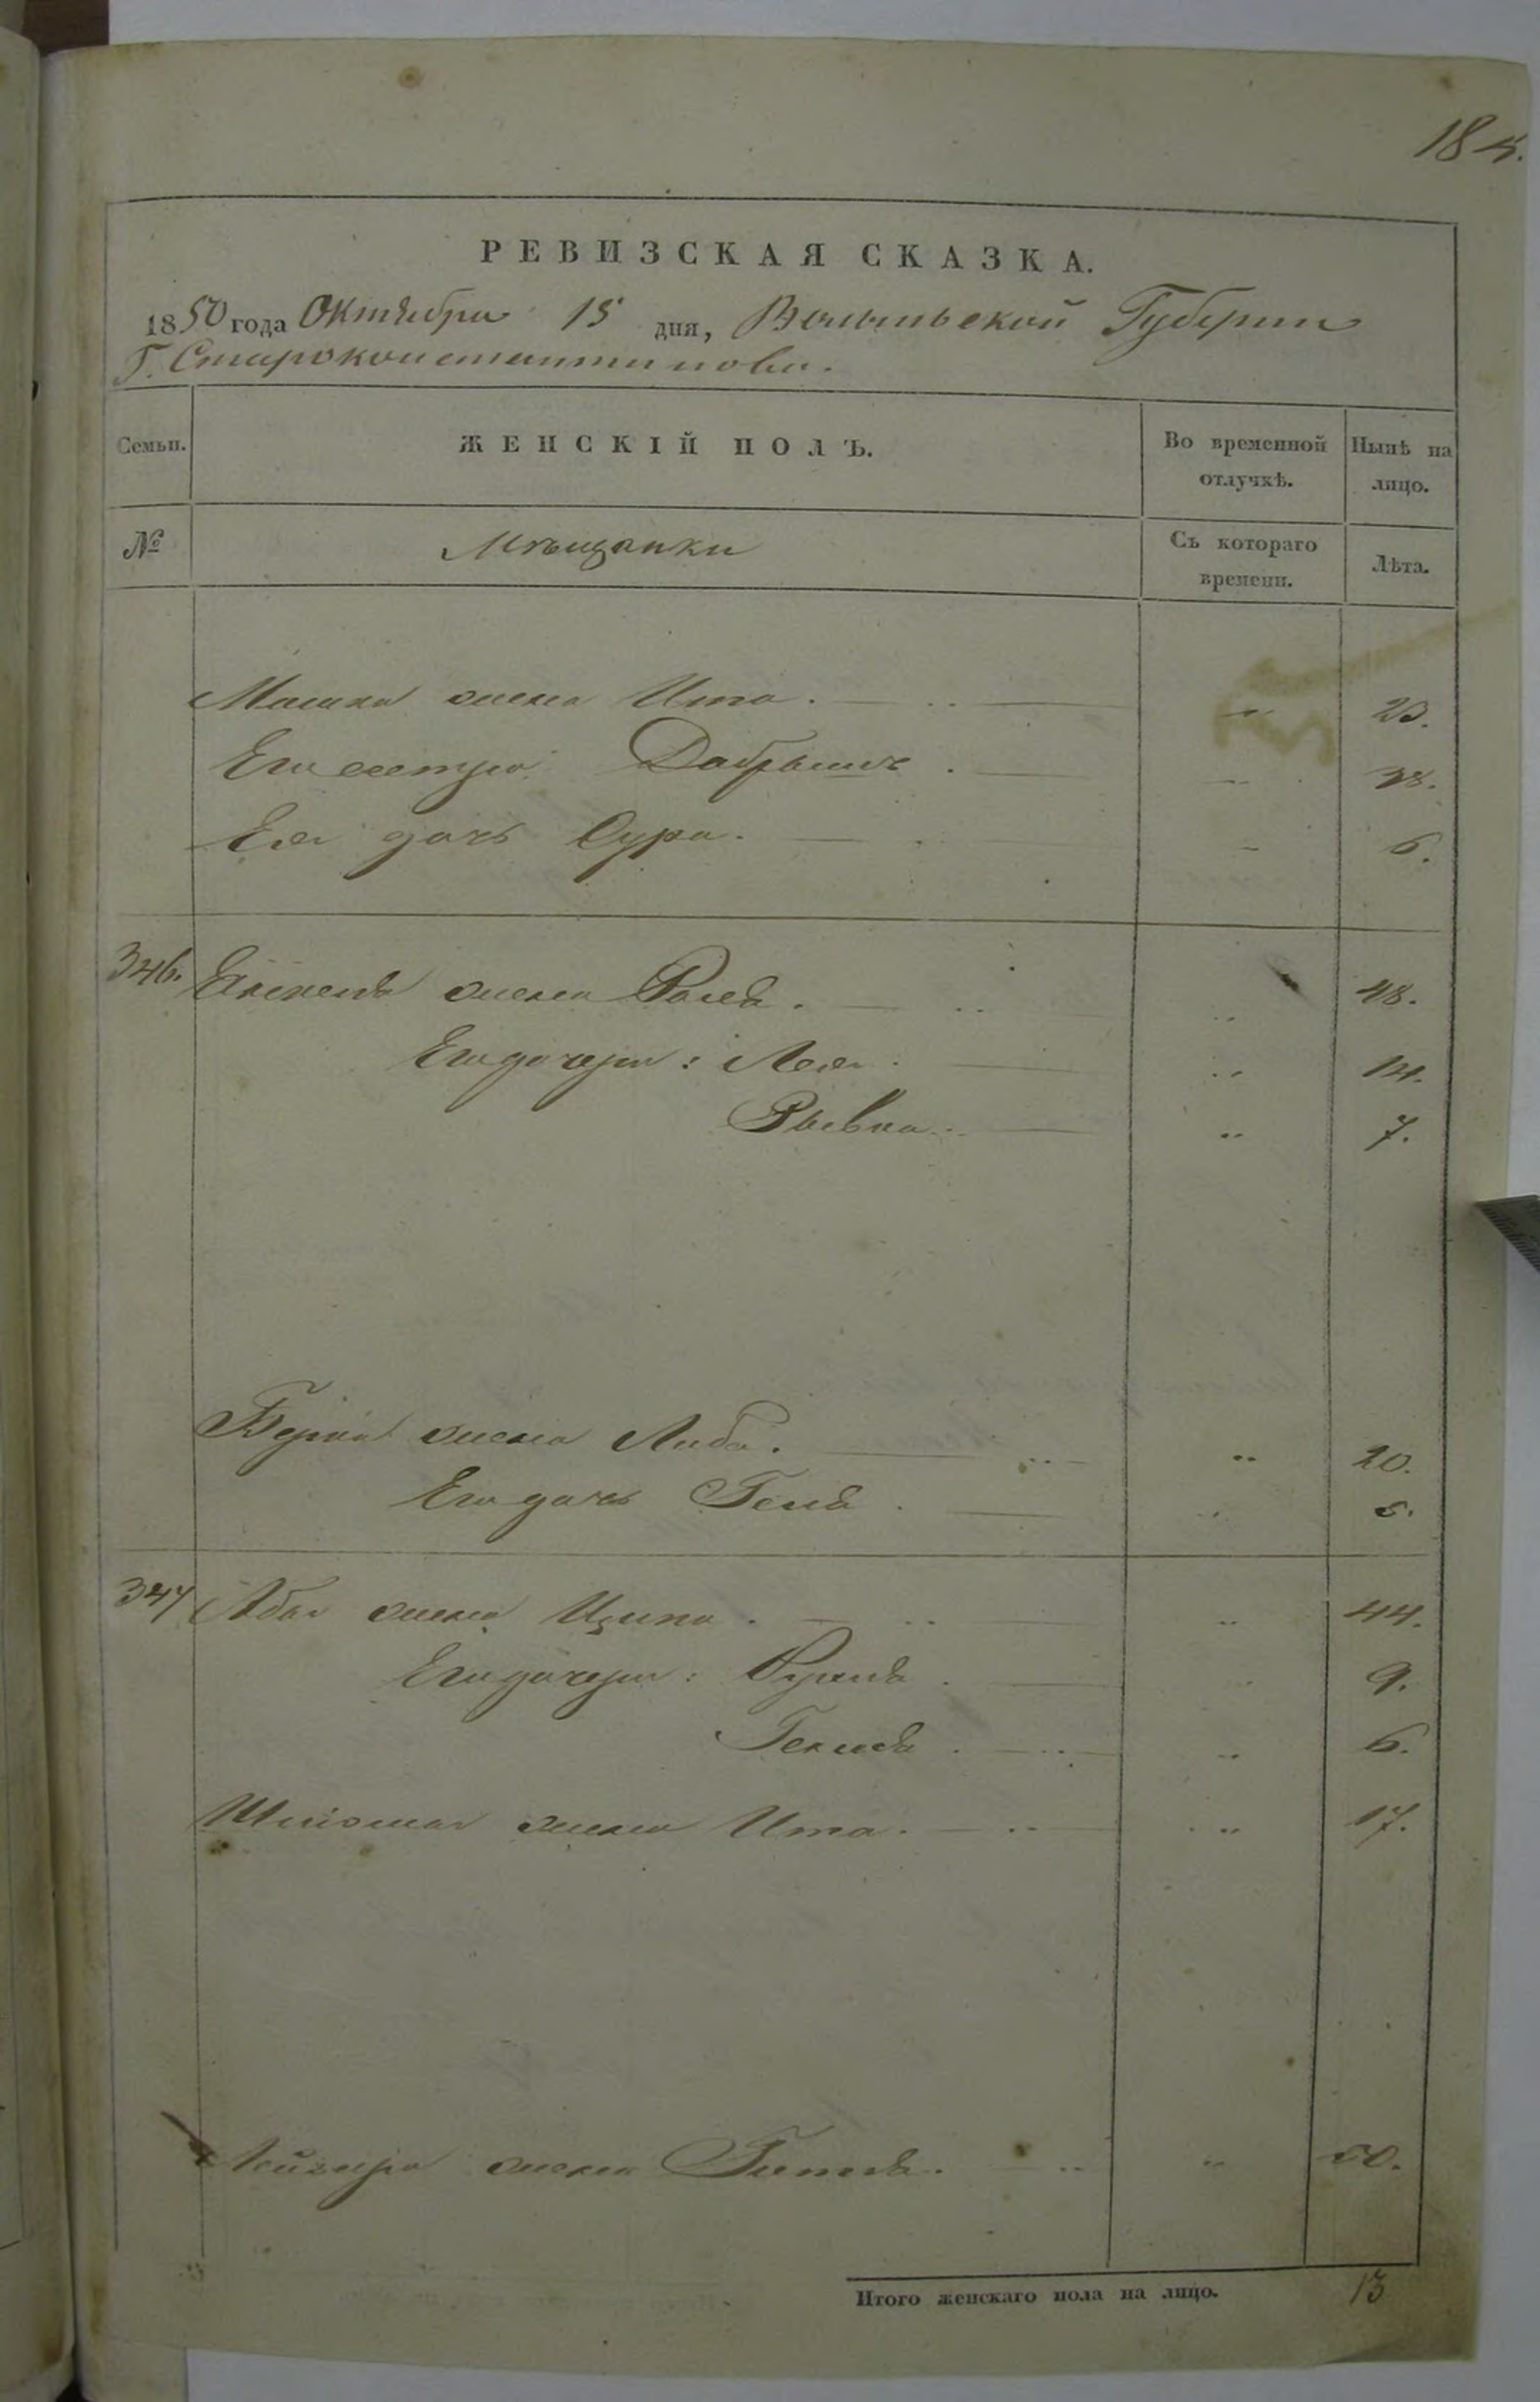 185.
РЕВИЗСКАЯ СКАЗКА.
1850 года Октября 15 дня, Волынской Губернии
Г. Староконстантинова.
Семьи. ЖЕНСКІЙ ПОЛЪ. Во временной отлучкѣ. Нынѣ на лицо.
№ Мѣщанки Съ котораго времени. Лѣта.
жена Ита. 23.
Его сестра Добрышъ. 38.
Ея дочь Сура. 6.
346. жена Рася. 48.
Его дочери: Лея. 14.
Рывка. 7.
Берка жена Либа. 20.
Его дочь Геня. 5.
347 Абы жена Ципа. 44.
Его дочери: 9.
6.
жена Ита. 17.
Лейзера жена Гитля. 50.
Итого женскаго пола на лицо. 13